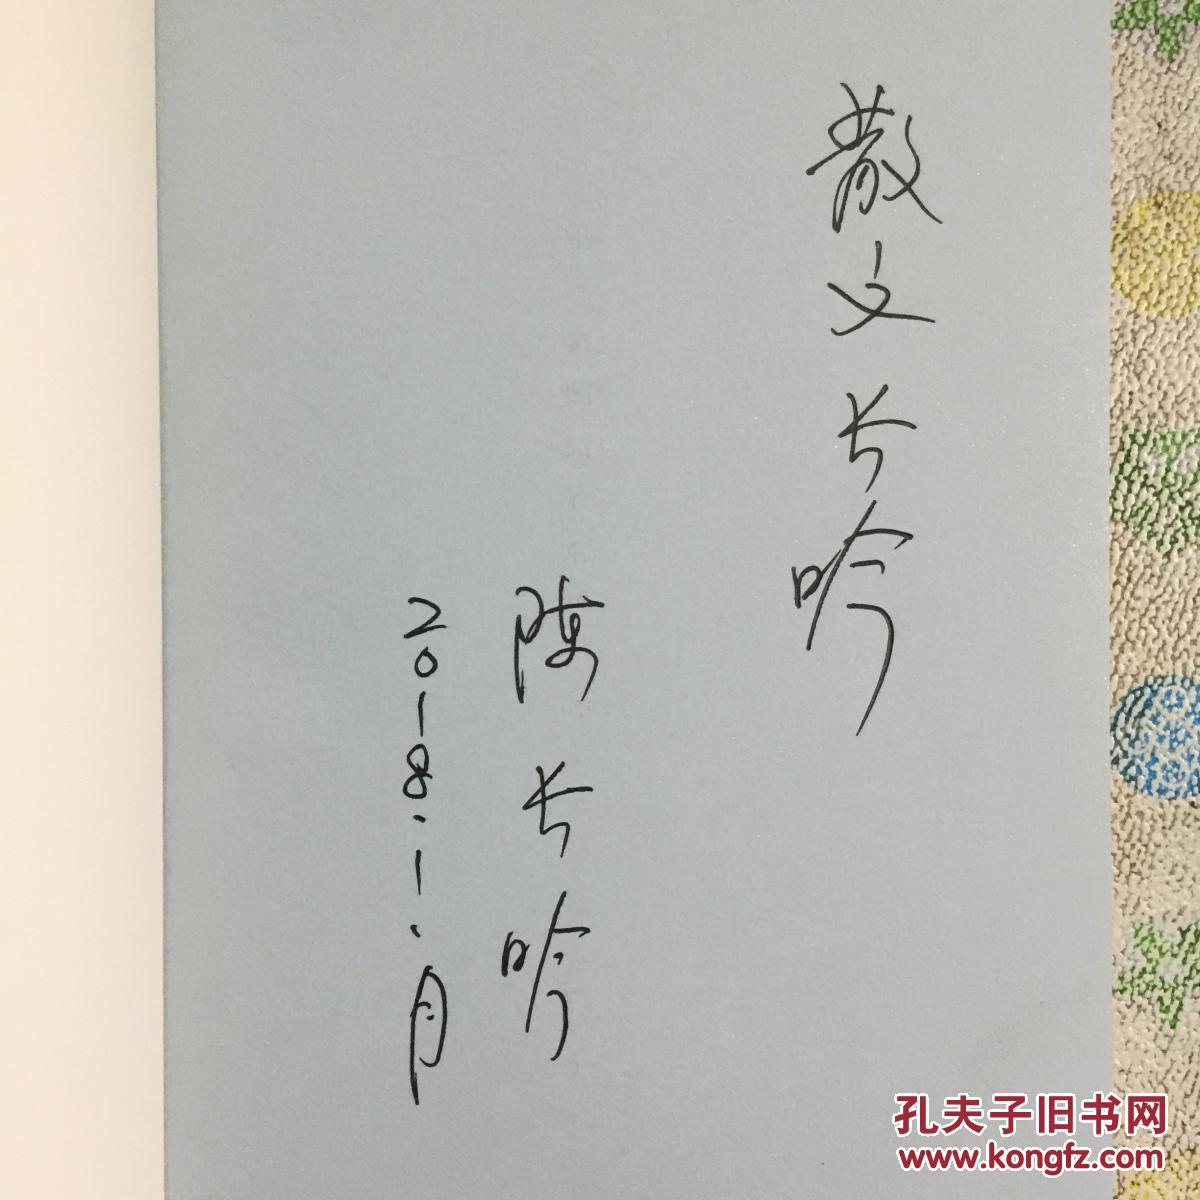 散文长吟
陈长吟
2018.1.月
孔夫子旧书网
www.kongfz.com